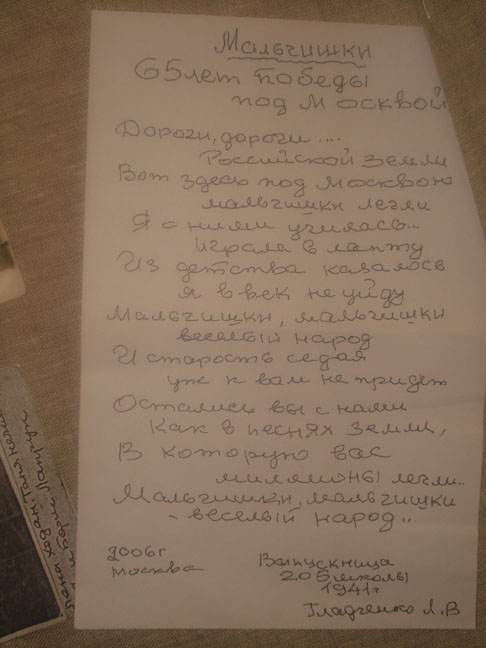 Мальчишки
65 лет Победы
под Москвой
Дороги, дороги ....
Российской Земли
Вот здесь под Москвою
мальчишки легли
Я с ними училась...
играла в лапту
Из детства казалось
я в век не уйду
Мальчишки, мальчишки
веселый народ
И старость седая
уж к вам не придет
Остались вы с нами
Как в песнях Земли,
В которую вас
миллионы легли..
Мальчишки, мальчишки
- веселый народ..
2006г
Москва
Выпускница
205 школы
1941г
Гладченко Л.В